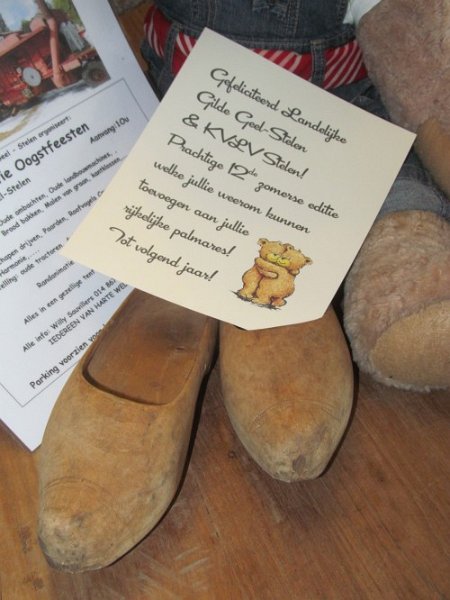 Gefeliciteerd Landelijke
Gilde Geel-Stelen
& KVLV Stelen!
Prachtige 12de zomerse editie
welke jullie weerom kunnen
toevoegen aan jullie
rijkelijke palmares!
Tot volgend jaar!
eel - Stelen organiseert:
ie Oogstfeesten
Aanvang:10u
l-Stelen
Oude ambachten, Oude landbouwmachines,
Brood bakken, Malen van graan,
schapen drijven, Paarden, Roofvogels
Harmonie,....
elling: oude tractoren,
Randanimatie
Alles in een gezellige
Alle info: Willy Sauvillers 014
IEDEREEN VAN HARTE WEL
Parking voorzien